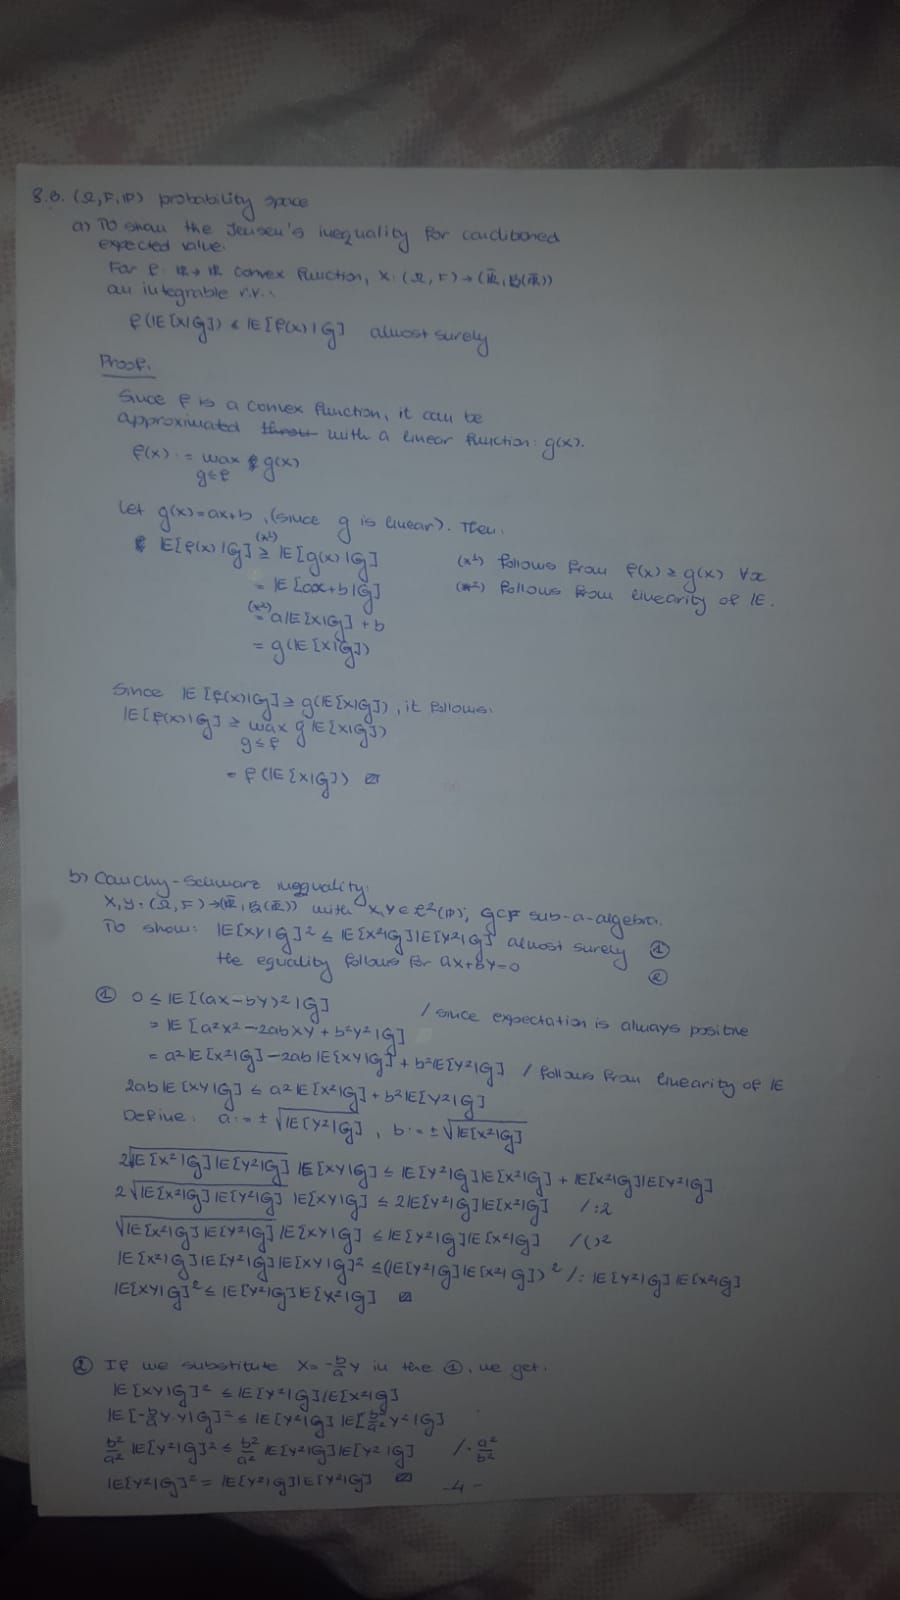 8.B. (Ω, F, IP) probability space
a) To show the Jensen's inequality for conditioned
expected value.
For φ: IR → IR convex function, X: (Ω, F) → (ĪR, B(ĪR))
an integrable r.v.:
φ(IE[X|G]) ≤ IE[φ(X)|G] almost surely
Proof.
Since φ is a convex function, it can be
approximated with a linear function: g(x).
φ(x) := max g(x)
g≤φ
Let g(x)=ax+b, (since g is linear). Then:
IE[φ(X)|G] ≥ IE[g(X)|G] (*¹) follows from φ(x) ≥ g(x) ∀x
(*¹)
= IE[aX+b|G] (*²) follows from linearity of IE.
(*²)
= aIE[X|G] + b
= g(IE[X|G])
Since IE[φ(X)|G] ≥ g(IE[X|G]), it follows:
IE[φ(X)|G] ≥ max g IE[X|G])
g≤φ
= φ(IE[X|G])
b) Cauchy-Schwarz inequality:
X,Y: (Ω, F) → (ĪR, B(ĪR)) with X,Y ∈ L²(IP), G⊂F sub-σ-algebra.
To show: IE[XY|G]² ≤ IE[X²|G]IE[Y²|G] almost surely ①
the equality follows for aX+bY=0 ②
① 0 ≤ IE[(aX-bY)²|G] / since expectation is always positive
= IE[a²X²-2abXY+b²Y²|G]
= a²IE[X²|G]-2abIE[XY|G]+b²IE[Y²|G] / follows from linearity of IE
2abIE[XY|G] ≤ a²IE[X²|G]+b²IE[Y²|G]
Define: a:=±√IE[Y²|G], b:=±√IE[X²|G]
2√IE[X²|G]IE[Y²|G] IE[XY|G] ≤ IE[Y²|G]IE[X²|G] + IE[X²|G]IE[Y²|G]
2√IE[X²|G]IE[Y²|G] IE[XY|G] ≤ 2IE[Y²|G]IE[X²|G] /:2
√IE[X²|G]IE[Y²|G] IE[XY|G] ≤ IE[Y²|G]IE[X²|G] /()²
IE[X²|G]IE[Y²|G]IE[XY|G]² ≤ (IE[Y²|G]IE[X²|G])² /: IE[Y²|G]IE[X²|G]
IE[XY|G]² ≤ IE[Y²|G]IE[X²|G]
② If we substitute X=-b/a Y in the ①, we get:
IE[XY|G]² ≤ IE[Y²|G]IE[X²|G]
IE[-b/a Y·Y|G]² ≤ IE[Y²|G] IE[b²/a² Y²|G]
b²/a² IE[Y²|G]² ≤ b²/a² IE[Y²|G]IE[Y²|G] /· a²/b²
IE[Y²|G]² = IE[Y²|G]IE[Y²|G]
-4-